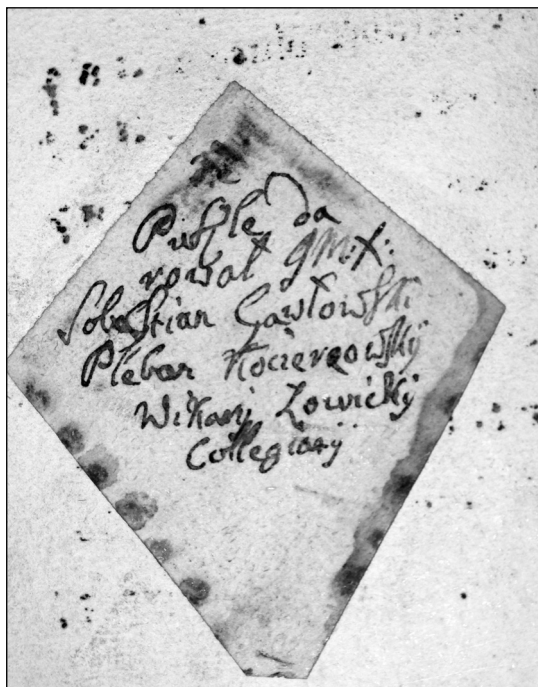 Puszle da
rowal JM:X:
Sobestian Gawłowski
Pleban Kocierzowskÿ
Wikarÿ Łowickÿ
Collegiatÿ